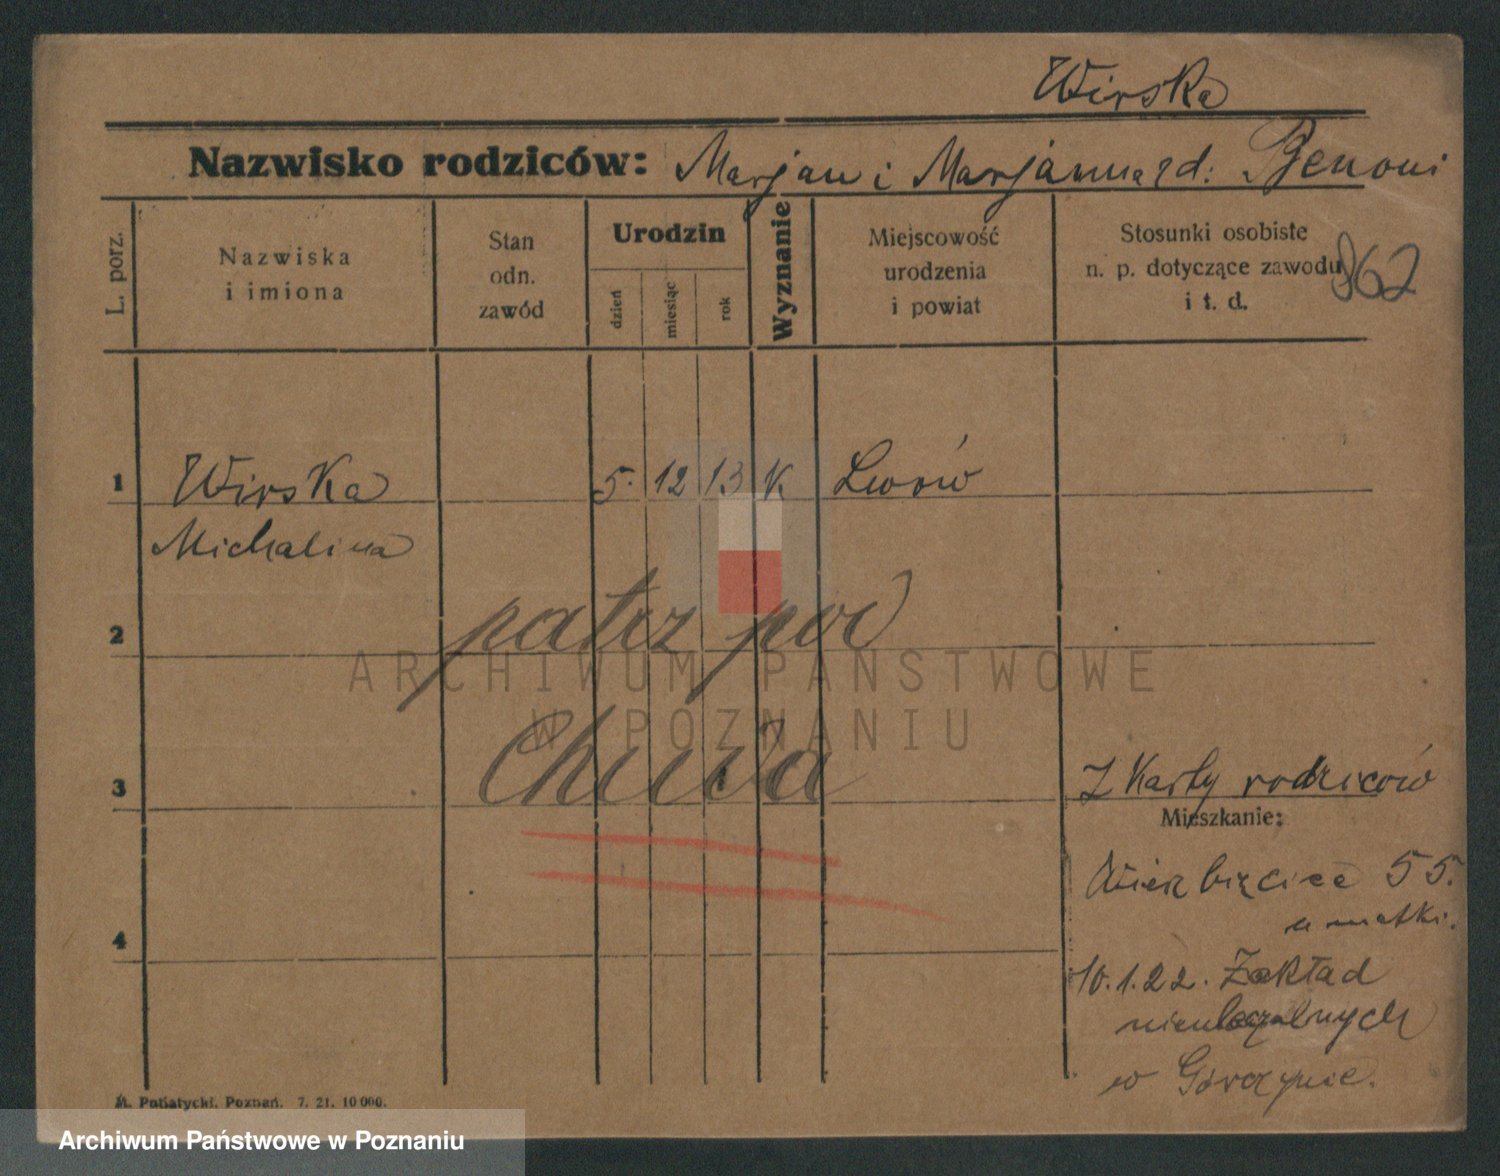 Wirska
Nazwisko rodziców: Marjan i Marjanna rd: Benoni
L. porz.
Nazwiska
i imiona
Stan
odn.
zawód
Urodzin
dzień
miesiąc
rok
Wyznanie
Miejscowość
urodzenia
i powiat
Stosunki osobiste
n. p. dotyczące zawodu
i t. d.
862
1 Wirska 5. 12 13 K Lwów
Michalina
2 patrz pod
ARCHIWUM PAŃSTWOWE
W POZNANIU
3
Z Karty rodziców
Mieszkanie:
Wierzbięcice 55.
u matki.
4
10.1.22. Zakład
nieuleczalnych
w Górczynie.
M. Putiatycki. Poznań. 7. 21. 10 000.
Archiwum Państwowe w Poznaniu